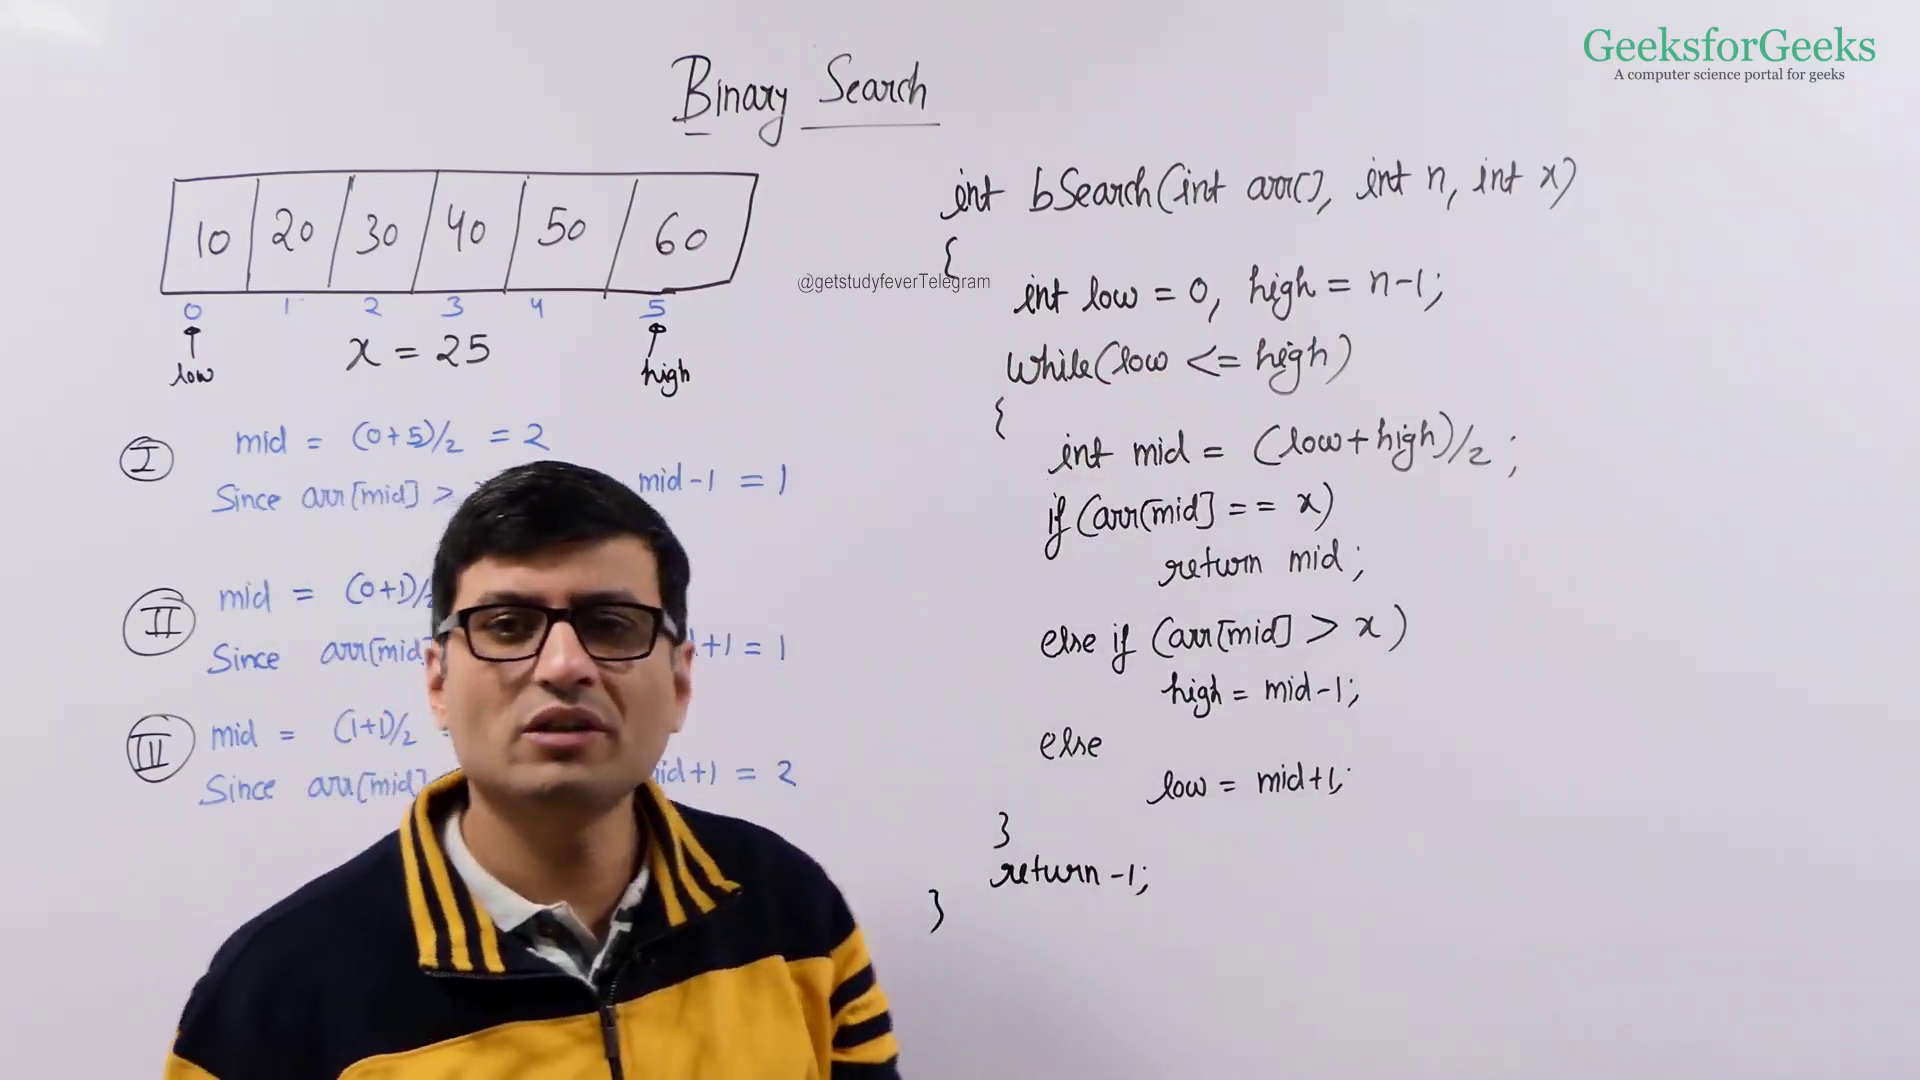 GeeksforGeeks
A computer science portal for geeks
Binary Search
10 20 30 40 50 60
0 1 2 3 4 5
low x = 25 high
I mid = (0+5)/2 = 2
Since arr[mid] > mid-1 = 1
II mid = (0+1)/
Since arr[mid] +1 = 1
III mid = (1+1)/2
Since arr[mid] mid+1 = 2
int bSearch(int arr[], int n, int x)
{
@getstudyfeverTelegram
int low = 0, high = n-1;
while(low <= high)
{
int mid = (low+high)/2;
if(arr[mid] == x)
return mid;
else if (arr[mid] > x)
high = mid-1;
else
low = mid+1;
}
return -1;
}